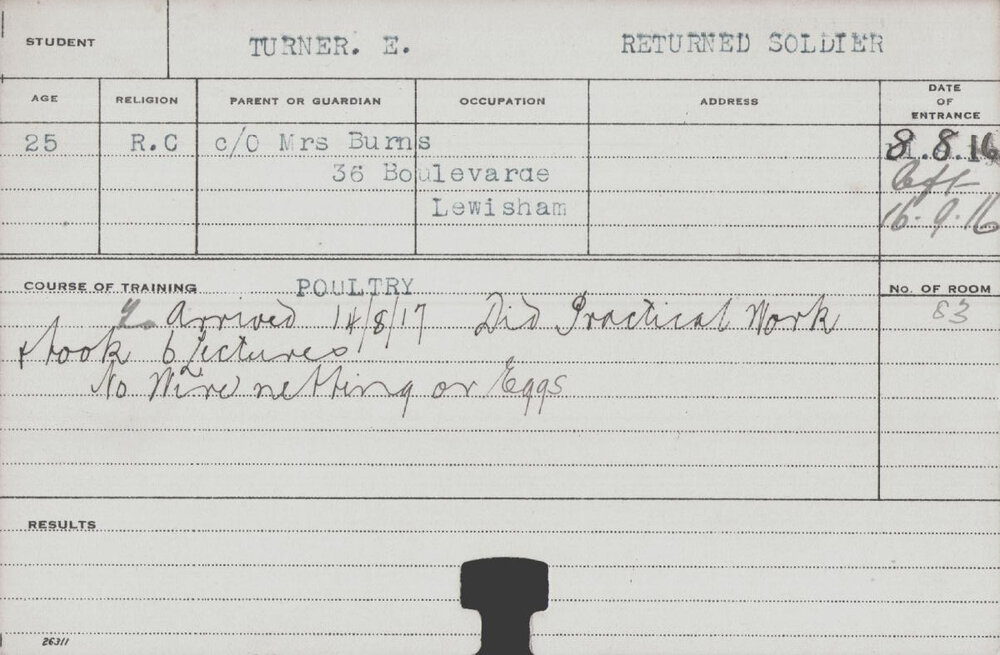 STUDENT TURNER. E. RETURNED SOLDIER
AGE RELIGION PARENT OR GUARDIAN OCCUPATION ADDRESS DATE OF ENTRANCE
25 R.C c/O Mrs Burns 8.8.16
36 Boulevarde Left
Lewisham 16.9.16
COURSE OF TRAINING POULTRY No. OF ROOM
Arrived 14/8/17 Did Practical Work 83
& took 6 Lectures
No Wire netting or Eggs
RESULTS
26311